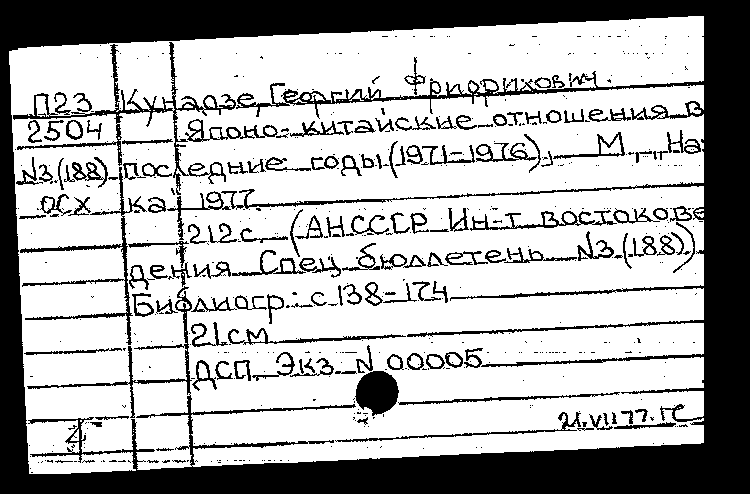 П23 Кунадзе, Георгий Фридрихович.
2504 Японо-китайские отношения в
N3(188) последние годы (1971-1976), М., „На-
ОСХ ка" 1977.
212 с. (АН СССР Ин-т востокове
дения Спец. бюллетень N3(188)
Библиогр.: с 138-174
21 см
ДСП. Экз. N 00005
4
21.VII 77. ГС